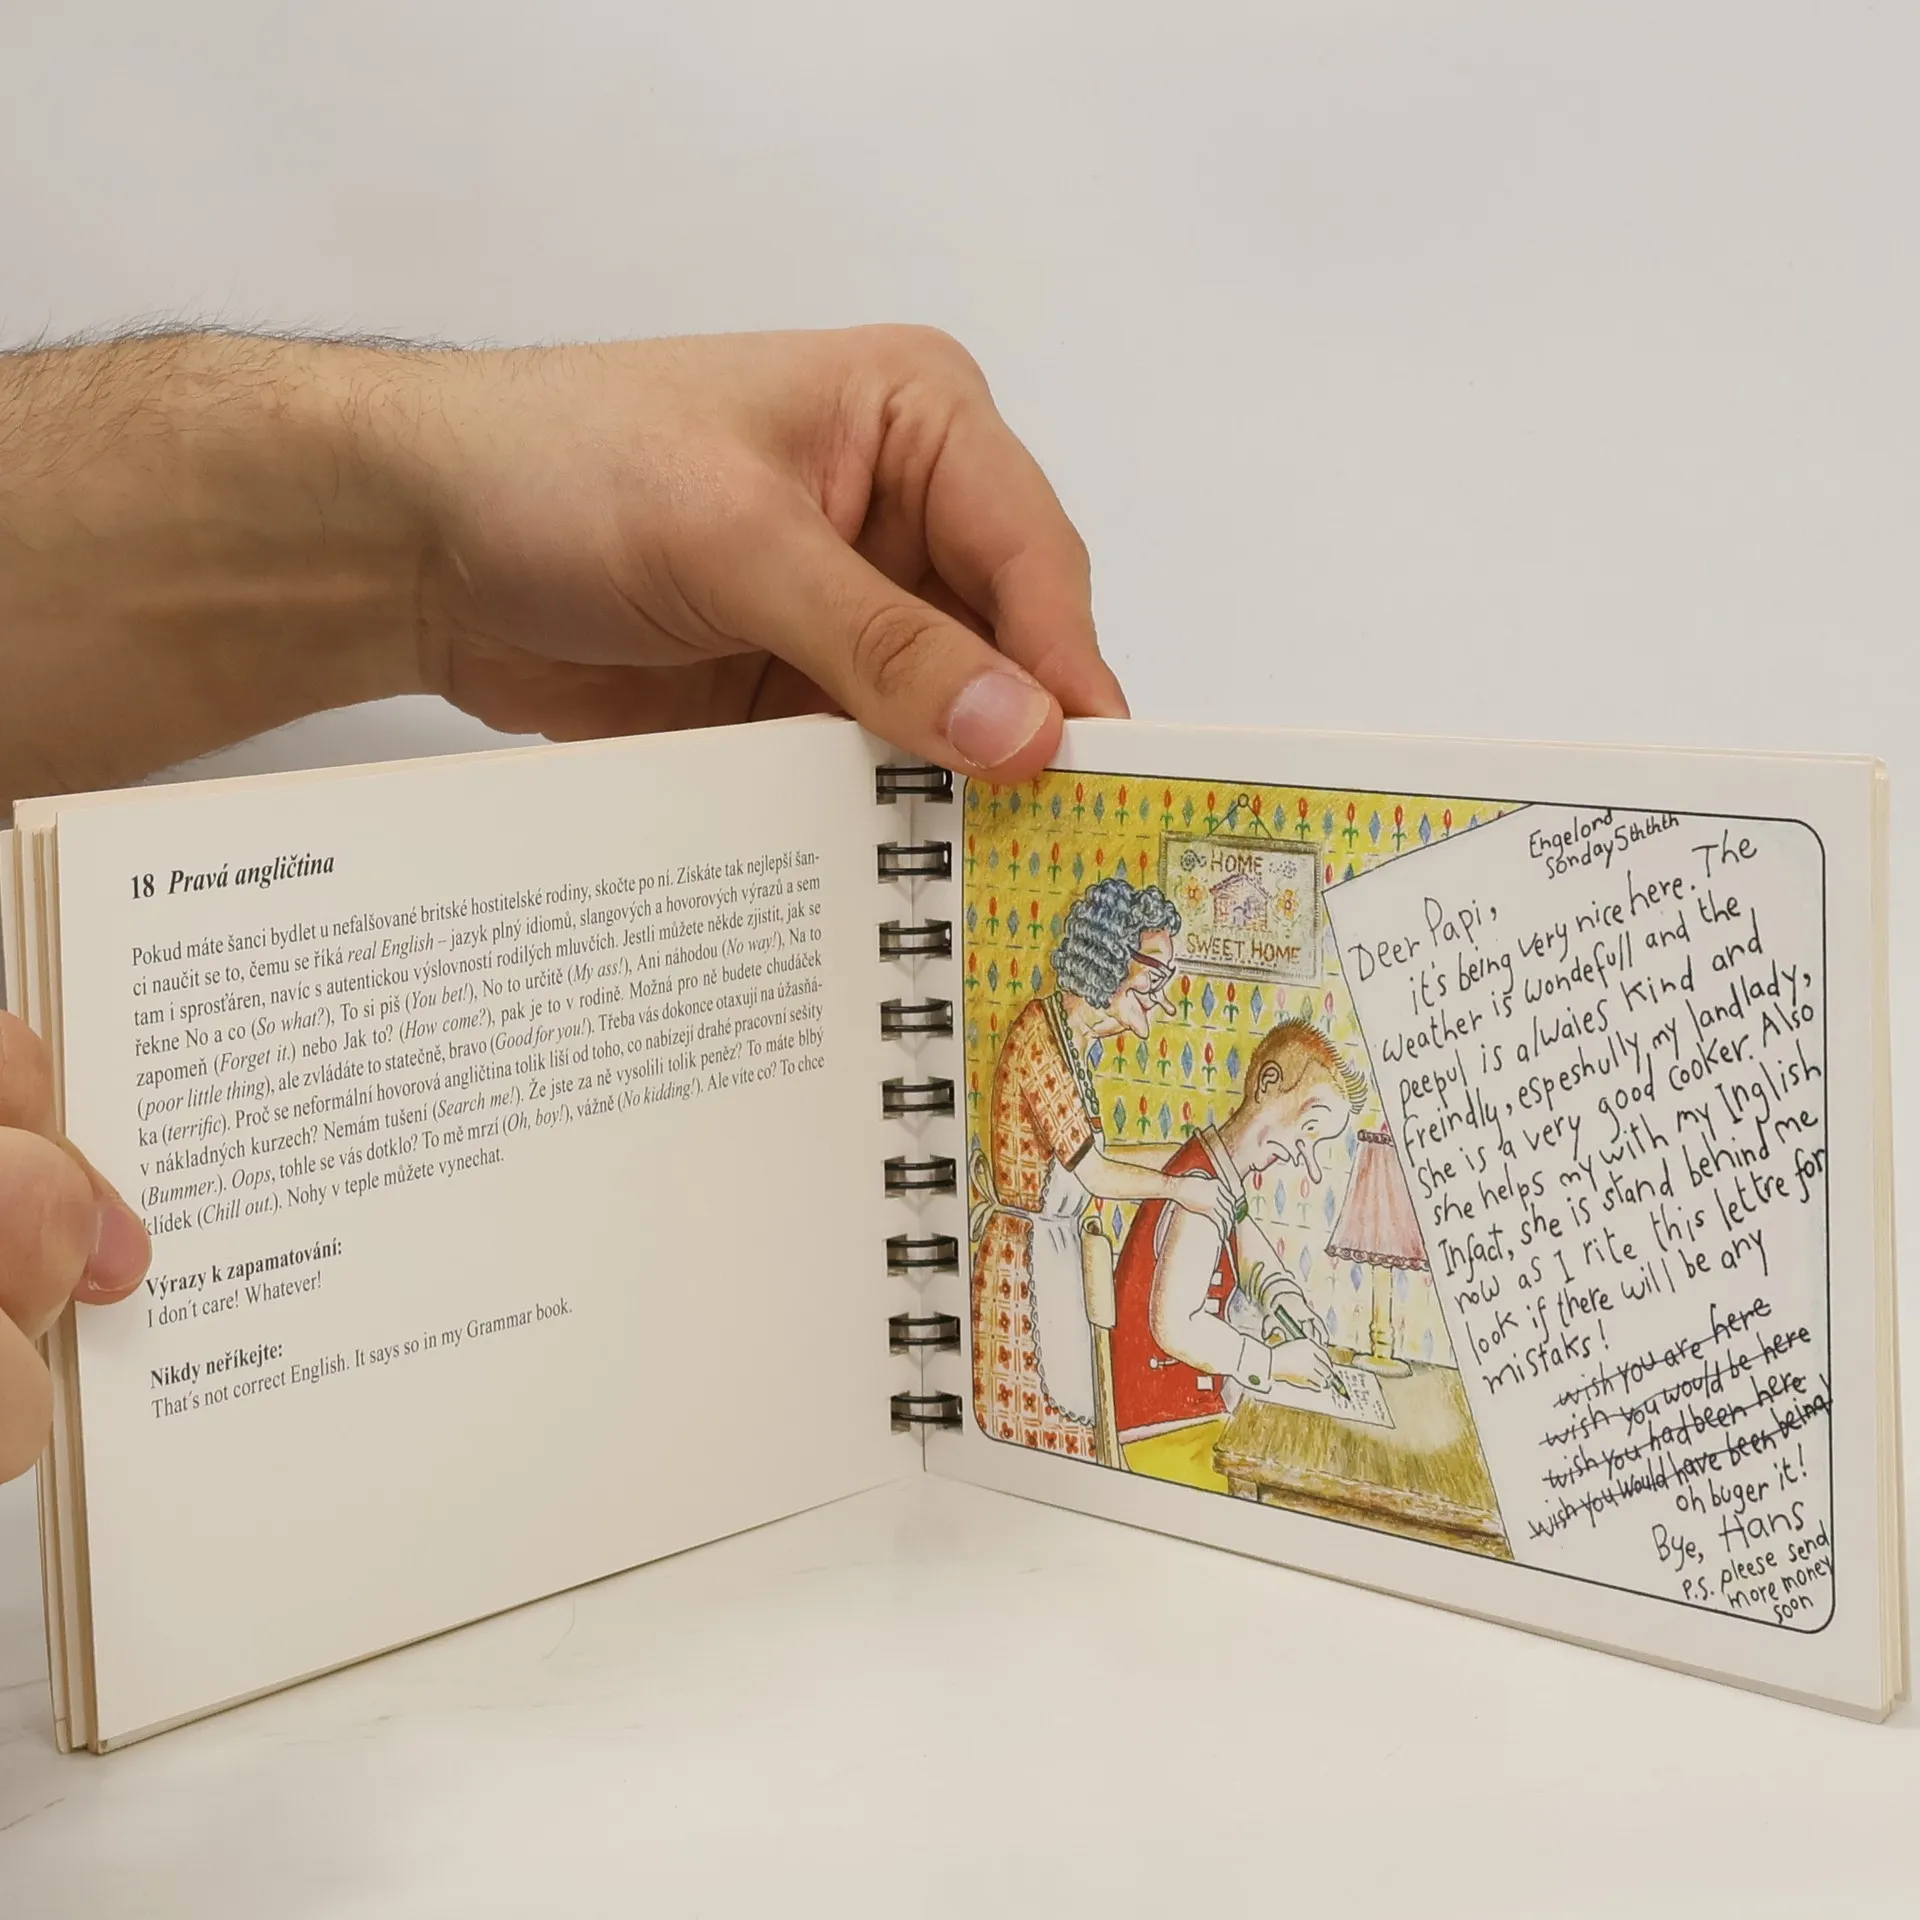 18 Pravá angličtina
Pokud máte šanci bydlet u nefalšované britské hostitelské rodiny, skočte po ní. Získáte tak nejlepší šan-
ci naučit se to, čemu se říká real English – jazyk plný idiomů, slangových a hovorových výrazů a sem
tam i sprosťáren, navíc s autentickou výslovností rodilých mluvčích. Jestli můžete někde zjistit, jak se
řekne No a co (So what?), To si piš (You bet!), No to určitě (My ass!), Ani náhodou (No way!), Na to
zapomeň (Forget it.) nebo Jak to? (How come?), pak je to v rodině. Možná pro ně budete chudáček
(poor little thing), ale zvládáte to statečně, bravo (Good for you!). Třeba vás dokonce otaxují na úžasňá-
ka (terrific). Proč se neformální hovorová angličtina tolik liší od toho, co nabízejí drahé pracovní sešity
v nákladných kurzech? Nemám tušení (Search me!). Že jste za ně vysolili tolik peněz? To máte blbý
(Bummer.). Oops, tohle se vás dotklo? To mě mrzí (Oh, boy!), vážně (No kidding!). Ale víte co? To chce
klídek (Chill out.). Nohy v teple můžete vynechat.
Výrazy k zapamatování:
I don´t care! Whatever!
Nikdy neříkejte:
That´s not correct English. It says so in my Grammar book.
HOME
SWEET HOME
Engelond
Sonday 5ththth
Deer Papi,
it's being very nice here. The
weather is wondefull and the
peepul is alwaies kind and
freindly, espeshully my landlady,
she is a very good cooker. Also
she helps my with my Inglish
Infact, she is stand behind me
now as I rite this lettre for
look if there will be any
mistaks!
wish you are here
wish you would be here
wish you had been here
wish you would have been being
oh buger it!
Bye, Hans
P.S. pleese send
more money
soon